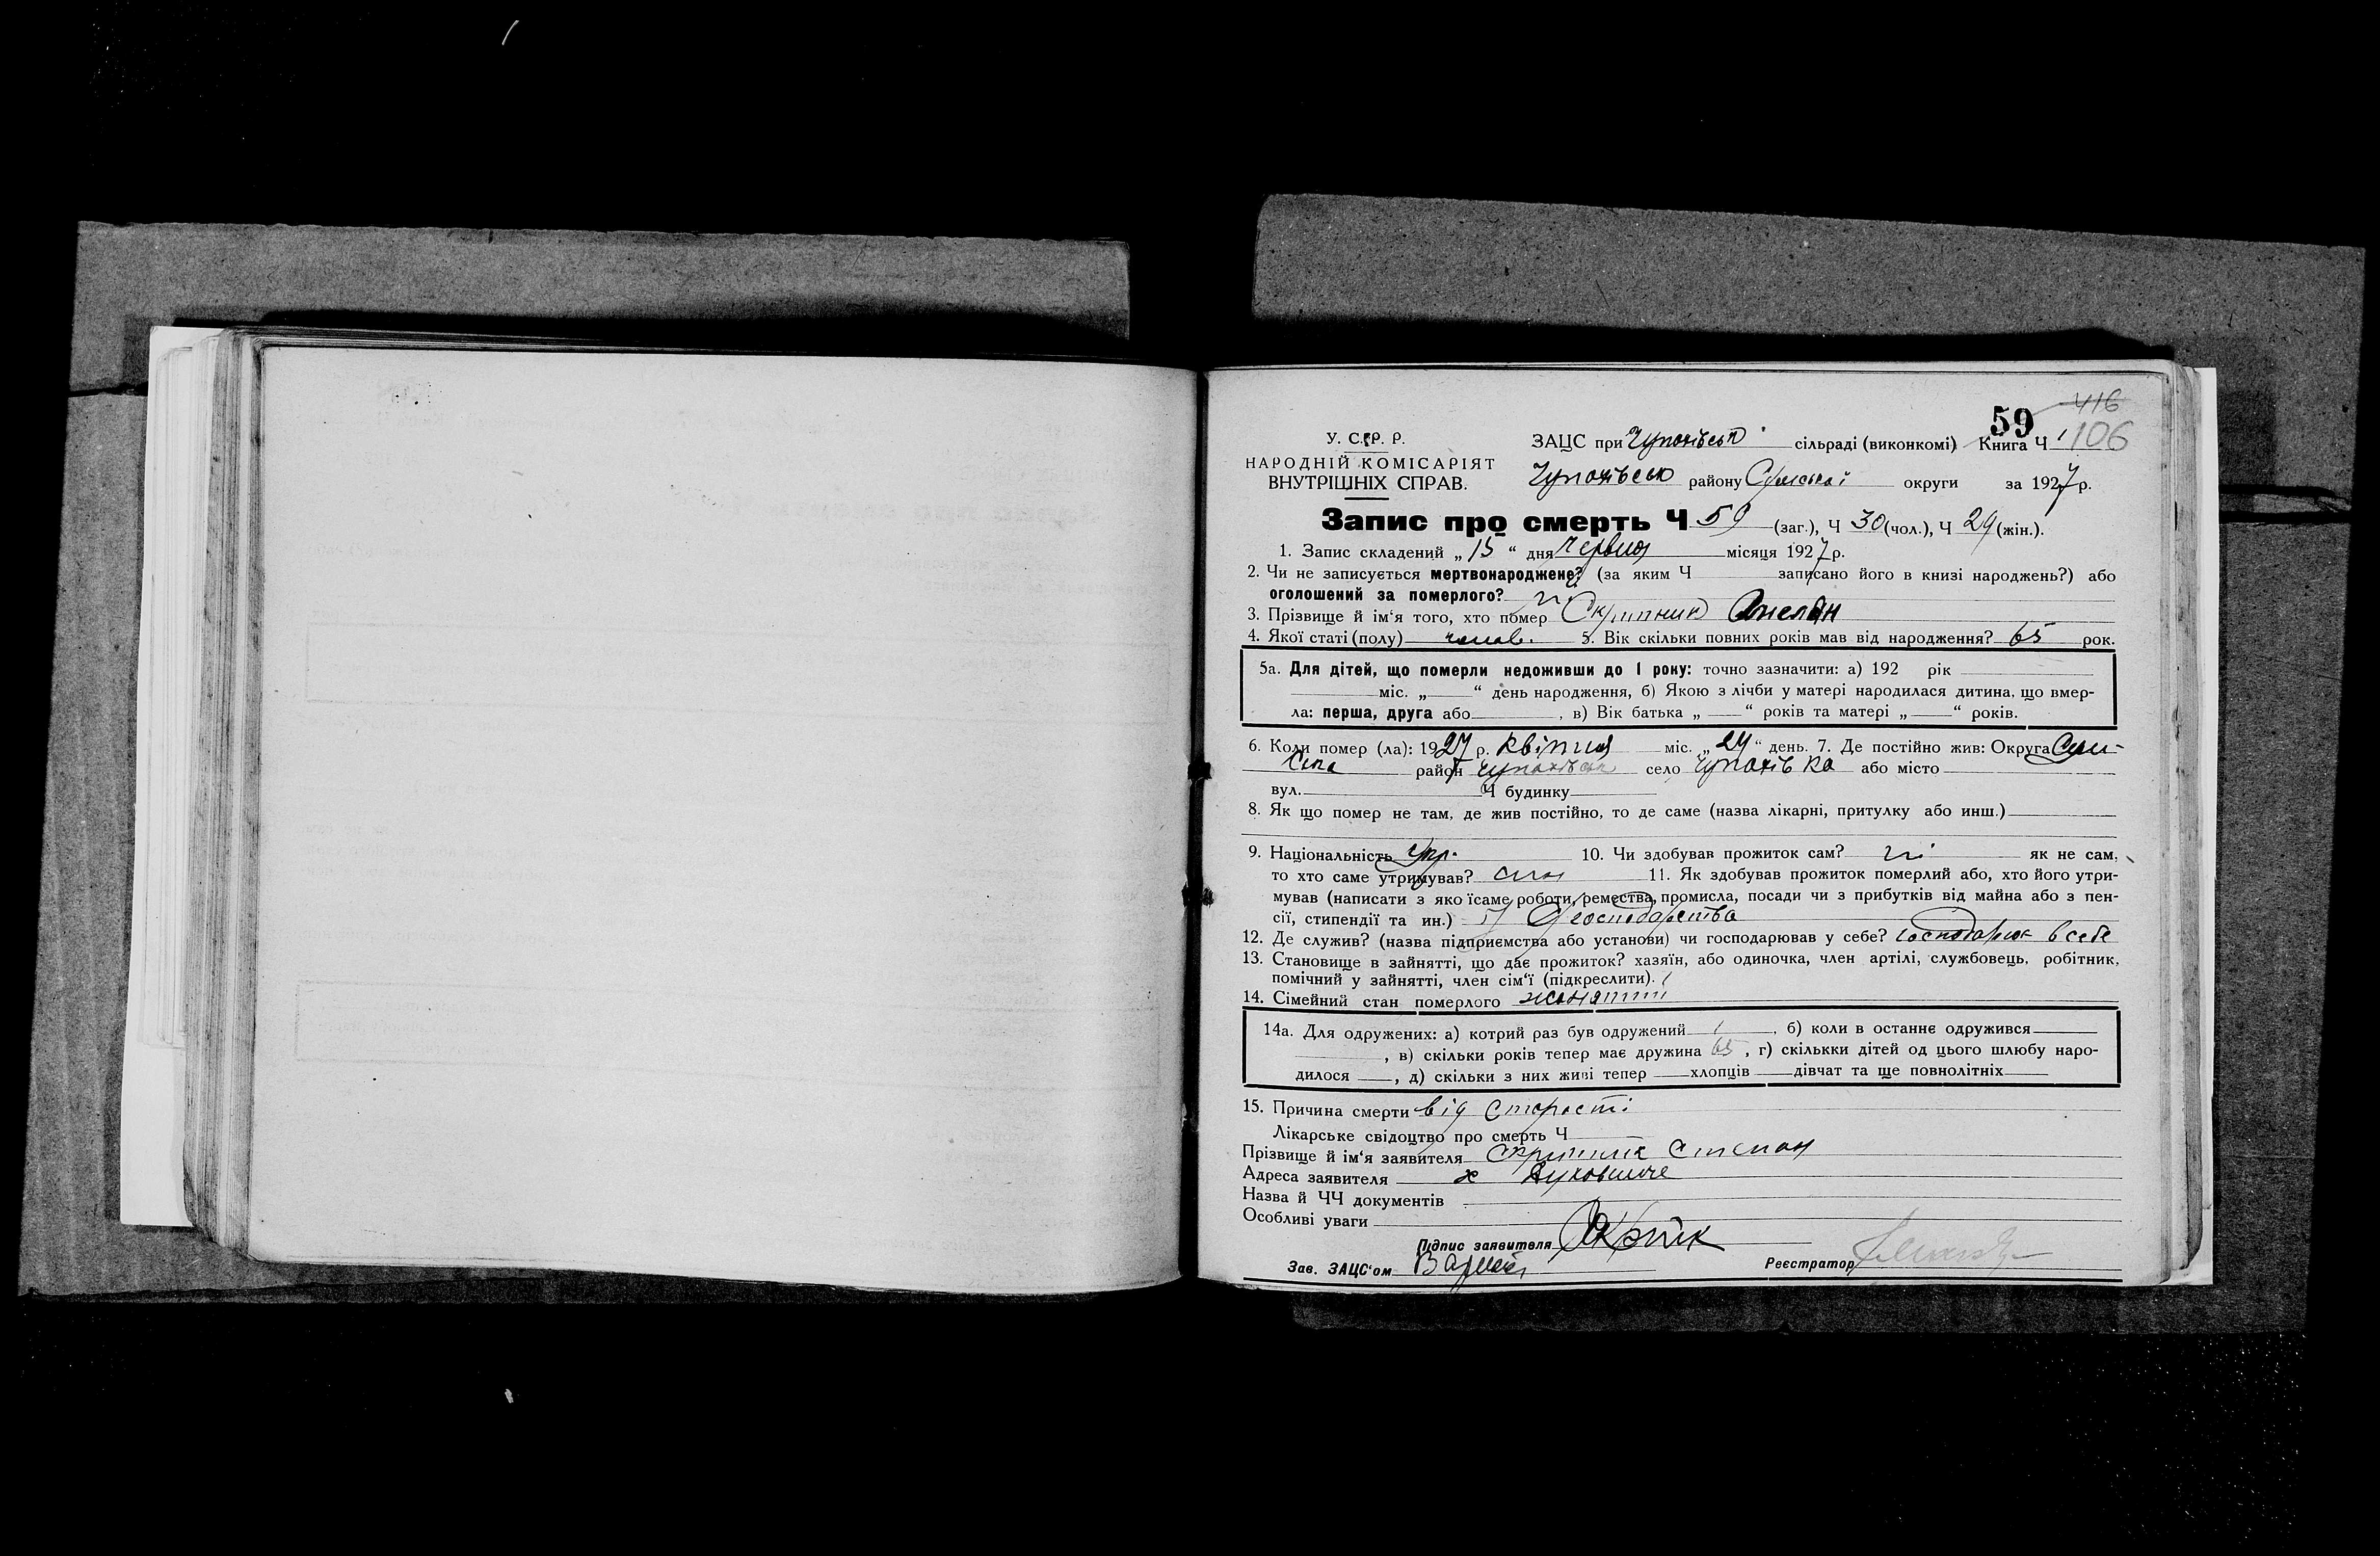 416
59
106
У. С. Р. Р.
НАРОДНІЙ КОМІСАРІЯТ
ВНУТРІШНІХ СПРАВ.
ЗАЦС при Чупахівськ сільраді (виконкомі) Книга Ч 1
Чупахівськ району Сумської округи за 1927 р.
Запис про смерть Ч 59 (заг.), Ч 30 (чол.), Ч 29 (жін.).
1. Запис складений „ 15 “ дня Червня місяця 1927 р.
2. Чи не записується мертвонароджене? (за яким Ч записано його в книзі народжень?) або
оголошений за померлого? ні
3. Прізвище й ім‘я того, хто помер Скрипник Омелян
4. Якої статі (полу) чолов. 5. Вік скільки повних років мав від народження? 65 рок.
5а. Для дітей, що померли недоживши до 1 року: точно зазначити: а) 192 рік
міс. „ “ день народження, б) Якою з лічби у матері народилася дитина, що вмер-
ла: перша, друга або , в) Вік батька „ “ років та матері „ “ років.
6. Коли помер (ла): 1927 р. квітня міс. „ 24 “ день. 7. Де постійно жив: Округа Сум-
ська район Чупахівськ село Чупахівка або місто
вул. Ч будинку
8. Як що помер не там, де жив постійно, то де саме (назва лікарні, притулку або инш.)
9. Національність Укр. 10. Чи здобував прожиток сам? ні як не сам,
то хто саме утримував? син 11. Як здобував прожиток померлий або, хто його утри-
мував (написати з яко їсаме роботи, ремества, промисла, посади чи з прибутків від майна або з пен-
сії, стипендії та ин.) господарства
12. Де служив? (назва підприємства або установи) чи господарював у себе? господарюв в себе
13. Становище в зайнятті, що дає прожиток? хазяїн, або одиночка, член артілі, службовець, робітник,
помічний у зайнятті, член сім‘ї (підкреслити).
14. Сімейний стан померлого жонатий
14а. Для одружених: а) котрий раз був одружений 1 , б) коли в останнє одружився
, в) скільки років тепер має дружина 65 , г) скількки дітей од цього шлюбу наро-
дилося , д) скільки з них живі тепер хлопців дівчат та ще повнолітніх
15. Причина смерти від старости
Лікарське свідоцтво про смерть Ч
Прізвище й ім‘я заявителя Скрипник Степан
Адреса заявителя х
Назва й ЧЧ документів
Особливі уваги
Підпис заявителя
Зав. ЗАЦС‘ом
Реєстратор